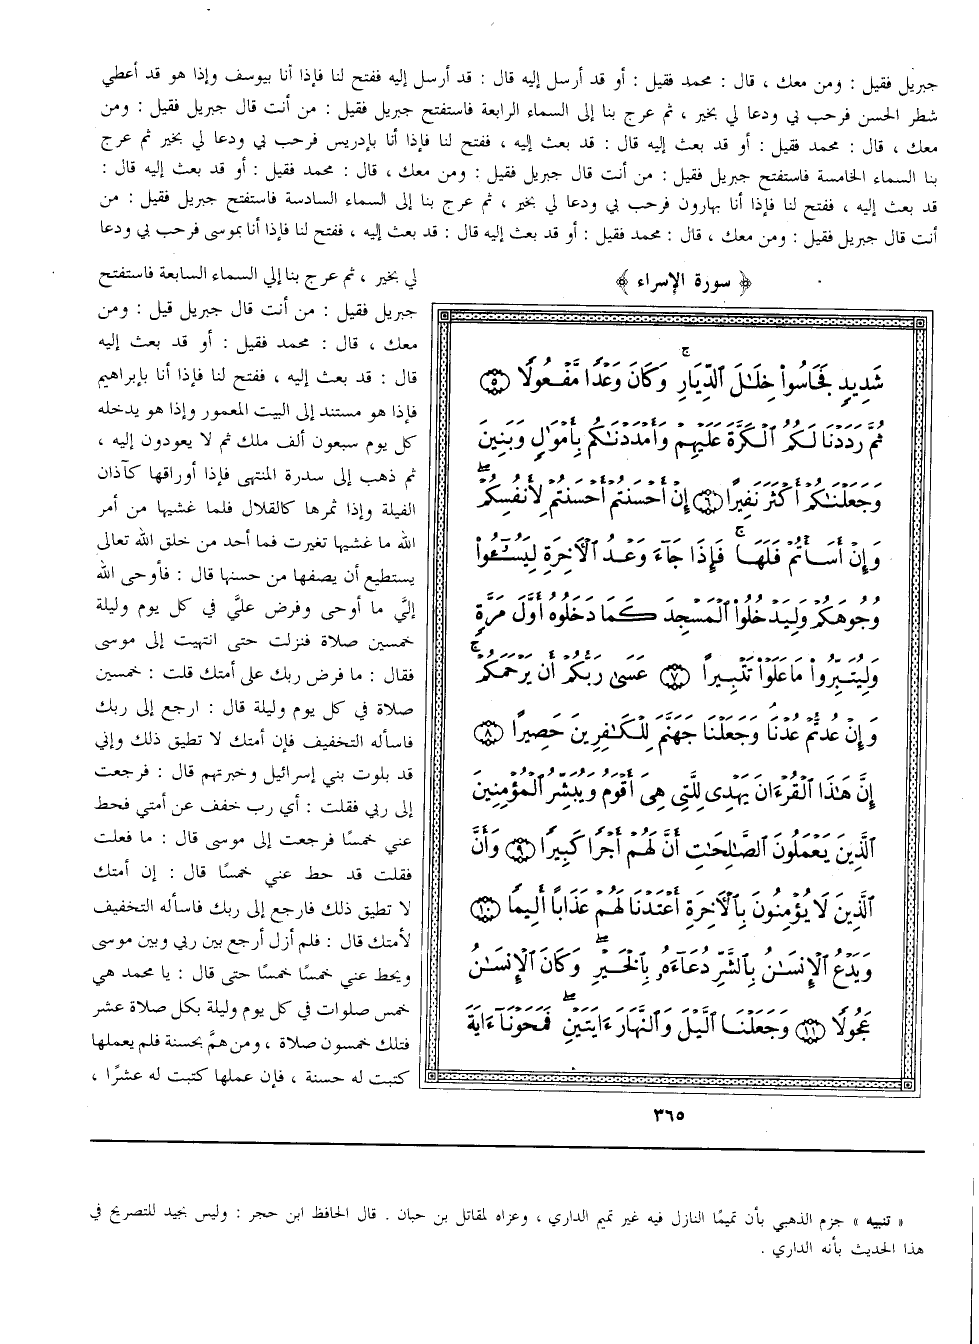 جبريل فقيل : ومن معك ، قال : محمد فقيل : أو قد أرسل إليه قال : قد أرسل إليه ففتح لنا فإذا أنا بيوسف وإذا هو قد أعطي
شطر الحسن فرحب بي ودعا لي بخير ، ثم عرج بنا إلى السماء الرابعة فاستفتح جبريل فقيل : من أنت قال جبريل فقيل : ومن
معك ، قال : محمد فقيل : أو قد بعث إليه قال : قد بعث إليه ، ففتح لنا فإذا أنا بإدريس فرحب بي ودعا لي بخير ثم عرج
بنا السماء الخامسة فاستفتح جبريل فقيل : من أنت قال جبريل فقيل : ومن معك ، قال : محمد فقيل : أو قد بعث إليه قال :
قد بعث إليه ، ففتح لنا فإذا أنا بهارون فرحب بي ودعا لي بخير ، ثم عرج بنا إلى السماء السادسة فاستفتح جبريل فقيل : من
أنت قال جبريل فقيل : ومن معك ، قال : محمد فقيل : أو قد بعث إليه قال : قد بعث إليه ، ففتح لنا فإذا أنا بموسى فرحب بي ودعا
لي بخير ، ثم عرج بنا إلى السماء السابعة فاستفتح
جبريل فقيل : من أنت قال جبريل قيل : ومن
معك ، قال : محمد فقيل : أو قد بعث إليه
قال : قد بعث إليه ، ففتح لنا فإذا أنا بإبراهيم
فإذا هو مستند إلى البيت المعمور وإذا هو يدخله
كل يوم سبعون ألف ملك ثم لا يعودون إليه ،
ثم ذهب إلى سدرة المنتهى فإذا أوراقها كآذان
الفيلة وإذا ثمرها كالقلال فلما غشيها من أمر
الله ما غشيها تغيرت فما أحد من خلق الله تعالى
يستطيع أن يصفها من حسنها قال : فأوحى الله
إليَّ ما أوحى وفرض عليَّ في كل يوم وليلة
خمسين صلاة فنزلت حتى انتهيت إلى موسى
فقال : ما فرض ربك على أمتك قلت : خمسين
صلاة في كل يوم وليلة قال : ارجع إلى ربك
فاسأله التخفيف فإن أمتك لا تطيق ذلك وإني
قد بلوت بني إسرائيل وخبرتهم قال : فرجعت
إلى ربي فقلت : أي رب خفف عن أمتي فحط
عني خمسًا فرجعت إلى موسى قال : ما فعلت
فقلت قد حط عني خمسًا قال : إن أمتك
لا تطيق ذلك فارجع إلى ربك فاسأله التخفيف
لأمتك قال : فلم أزل أرجع بين ربي وبين موسى
ويحط عني خمسًا خمسًا حتى قال : يا محمد هي
خمس صلوات في كل يوم وليلة بكل صلاة عشر
فتلك خمسون صلاة ، ومن همَّ بحسنة فلم يعملها
كتبت له حسنة ، فإن عملها كتبت له عشرًا ،
﴿ سورة الإسراء ﴾
شَدِيدٍ فَجَاسُوا۟ خِلَٰلَ ٱلدِّيَارِ ۚ وَكَانَ وَعْدًا مَّفْعُولًا ۝٥
ثُمَّ رَدَدْنَا لَكُمُ ٱلْكَرَّةَ عَلَيْهِمْ وَأَمْدَدْنَٰكُم بِأَمْوَٰلٍ وَبَنِينَ
وَجَعَلْنَٰكُمْ أَكْثَرَ نَفِيرًا ۝٦ إِنْ أَحْسَنتُمْ أَحْسَنتُمْ لِأَنفُسِكُمْ ۖ
وَإِنْ أَسَأْتُمْ فَلَهَا ۚ فَإِذَا جَآءَ وَعْدُ ٱلْءَاخِرَةِ لِيَسُۥٓـُٔوا۟
وُجُوهَكُمْ وَلِيَدْخُلُوا۟ ٱلْمَسْجِدَ كَمَا دَخَلُوهُ أَوَّلَ مَرَّةٍ
وَلِيُتَبِّرُوا۟ مَا عَلَوْا۟ تَتْبِيرًا ۝٧ عَسَىٰ رَبُّكُمْ أَن يَرْحَمَكُمْ ۚ
وَإِنْ عُدتُّمْ عُدْنَا ۘ وَجَعَلْنَا جَهَنَّمَ لِلْكَٰفِرِينَ حَصِيرًا ۝٨
إِنَّ هَٰذَا ٱلْقُرْءَانَ يَهْدِى لِلَّتِى هِىَ أَقْوَمُ وَيُبَشِّرُ ٱلْمُؤْمِنِينَ
ٱلَّذِينَ يَعْمَلُونَ ٱلصَّٰلِحَٰتِ أَنَّ لَهُمْ أَجْرًا كَبِيرًا ۝٩ وَأَنَّ
ٱلَّذِينَ لَا يُؤْمِنُونَ بِٱلْءَاخِرَةِ أَعْتَدْنَا لَهُمْ عَذَابًا أَلِيمًا ۝١٠
وَيَدْعُ ٱلْإِنسَٰنُ بِٱلشَّرِّ دُعَآءَهُۥ بِٱلْخَيْرِ ۖ وَكَانَ ٱلْإِنسَٰنُ
عَجُولًا ۝١١ وَجَعَلْنَا ٱلَّيْلَ وَٱلنَّهَارَ ءَايَتَيْنِ ۖ فَمَحَوْنَآ ءَايَةَ
٣٦٥
« تنبيه » جزم الذهبي بأن تميمًا النازل فيه غير تميم الداري ، وعزاه لمقاتل بن حبان . قال الحافظ ابن حجر : وليس بجيد للتصريح في
هذا الحديث بأنه الداري .